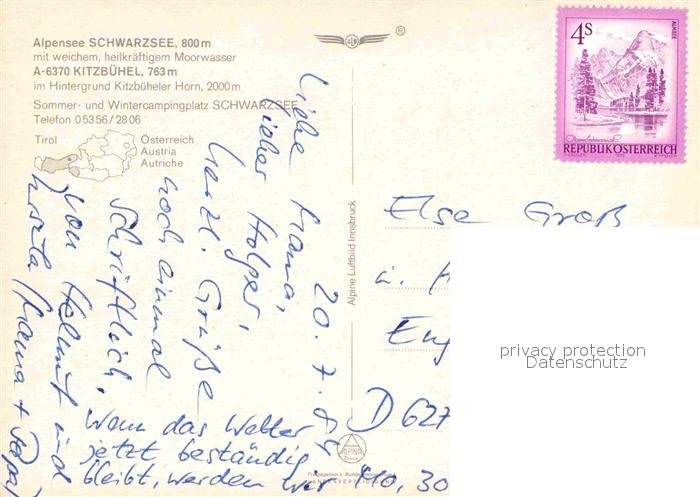 Alpensee SCHWARZSEE, 800 m
mit weichem, heilkräftigem Moorwasser
A-6370 KITZBÜHEL, 763 m
im Hintergrund Kitzbüheler Horn, 2000 m
Sommer- und Wintercampingplatz SCHWARZSEE
Telefon 0 53 56 / 28 06
Tirol
Österreich
Austria
Autriche
®
4S
ALMSEE
REPUBLIK ÖSTERREICH
Alpine Luftbild Innsbruck
20. 7. 84
Liebe Mama,
lieber Holger,
herzl. Grüße
noch einmal
schriftlich,
von Helmut und
(Mama + Papa)
Wenn das Wetter
jetzt beständig
bleibt, werden wir
Else Groß
Eug
D 627
ALPINA
privacy protection
Datenschutz